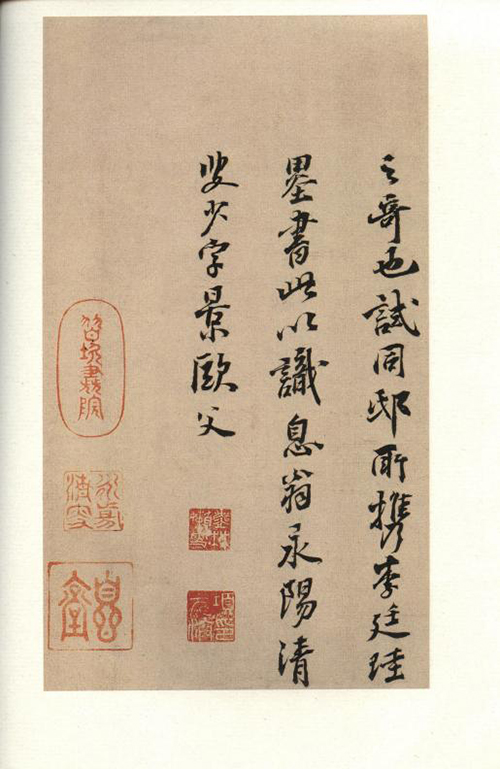 之奇也試同邸所攜李廷珪
墨書此以識息翁永陽清
叟少字景歐父